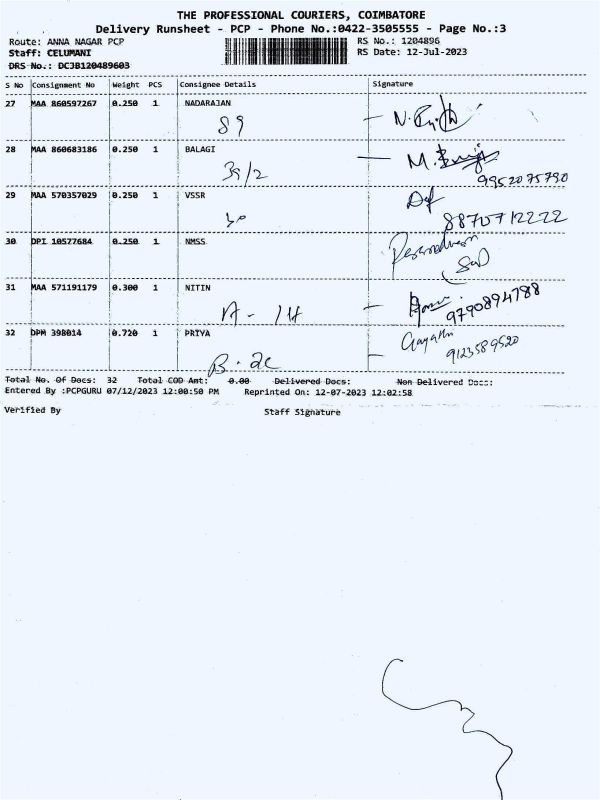 THE PROFESSIONAL COURIERS, COIMBATORE
Delivery Runsheet - PCP - Phone No.:0422-3505555 - Page No.:3
Route: ANNA NAGAR PCP RS No.: 1204896
Staff: CELUMANI RS Date: 12-Jul-2023
DRS No.: DCJB120489603
S No Consignment No Weight PCS Consignee Details Signature
27 MAA 860597267 0.250 1 NADARAJAN
89
28 MAA 860683186 0.250 1 BALAGI
39/2 9952075790
29 MAA 570357029 0.250 1 VSSR
30 8870712222
30 DPI 10577684 0.250 1 NMSS
31 MAA 571191179 0.300 1 NITIN
A - 1H 9790894788
32 DPM 398014 0.720 1 PRIYA Gayathri
B - 2C 9123589520
Total No. Of Docs: 32 Total COD Amt: 0.00 Delivered Docs: Non Delivered Docs:
Entered By :PCPGURU 07/12/2023 12:00:50 PM Reprinted On: 12-07-2023 12:02:58
Verified By Staff Signature